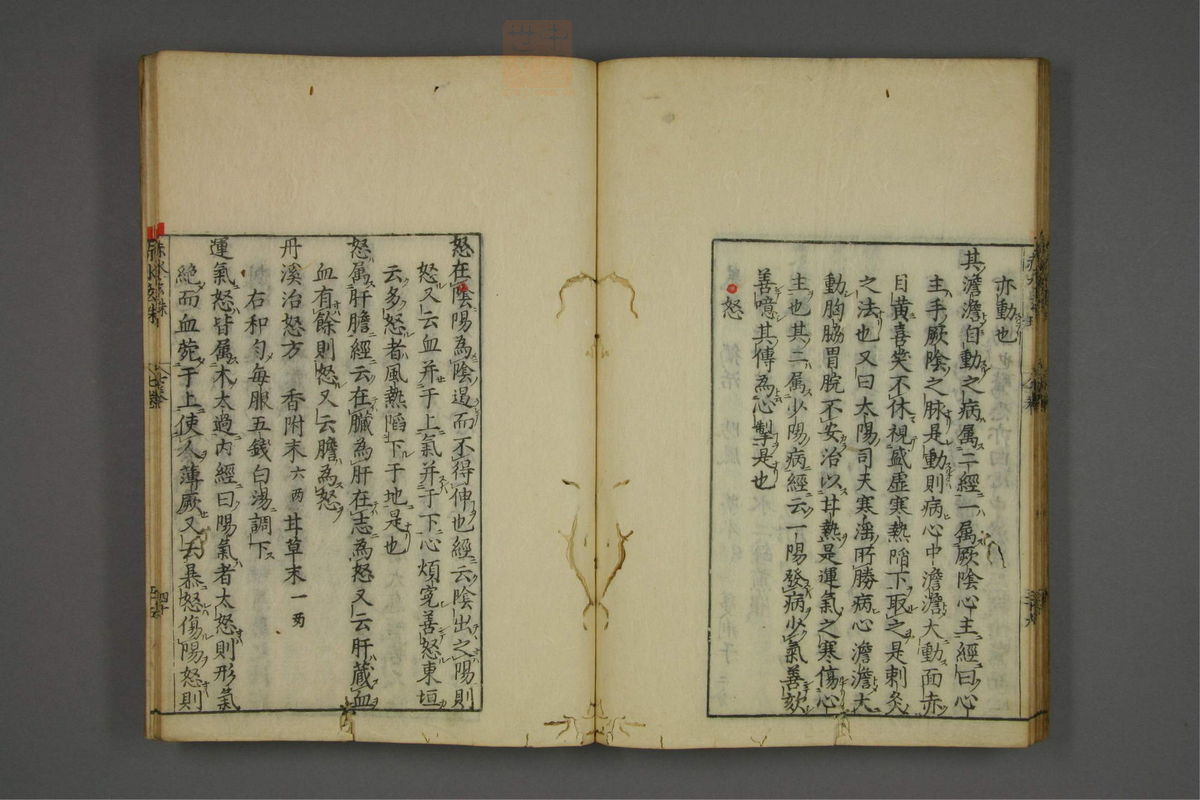 亦動也
其澹澹自動之病属二經一属厥陰心主經曰心
主手厥陰之脉是動則病心中澹澹大動面赤
目黄喜笑不休視盛虛寒熱陷下取之是刺灸
之法也又曰太陽司天寒淫所勝病心澹澹大
動胸脇胃脘不安治以甘熱是運氣之寒傷心
主也其二属少陽病經云一陽發病少氣善欬
善噫其傳為心掣是也
怒
怒在陰陽為陰遏而不得伸也經云陰出之陽則
怒又云血并于上氣并于下心煩寃善怒東垣
云多怒者風熱陷下于地是也
怒属肝膽經云在臟為肝在志為怒又云肝蔵血
血有餘則怒又云膽為怒
丹溪治怒方 香附末六两 甘草末一两
右和匀每服五錢白湯調下
運氣怒皆属木太過内經曰陽氣者太怒則形氣
絶而血菀于上使人薄厥又云暴怒傷陽怒則